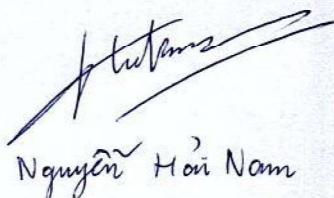 Nguyễn Hải Nam